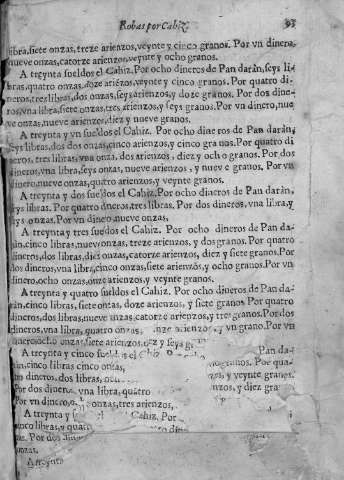 Robas por Cahiz. 93
libra, siete onzas, treze arienzos, veynte y cinco granos. Por vn dinero,
nueve onzas, catorze arienzos, veynte y ocho granos.
A treynta sueldos el Cahiz. Por ocho dineros de Pan darán, seys li-
bras, quatro onzas, doze ariézos, veynte y cinco granos. Por quatro di-
neros, tres libras, dos onzas, seys arienzos, y doze granos. Por dos dine-
ros, vna libra, siete onzas, tres arienzos, y seys granos. Por vn dinero, nue
ve onzas, nueve arienzos, diez y nueve granos.
A treynta y vn sueldos el Cahiz. Por ocho dineros de Pan darán,
seys libras, dos onzas, cinco arienzos, y cinco granos. Por quatro di
neros, tres libras, vna onza, dos arienzos, diez y ocho granos. Por dos
dineros, vna libra, seys onzas, nueve arienzos, y nueve granos. Por vn
dinero, nueve onzas, quatro arienzos, y veynte granos.
A treynta y dos sueldos el Cahiz. Por ocho dineros de Pan darán,
seys libras. Por quatro dineros, tres libras. Por dos dineros, vna libra, y
seys onzas. Por vn dinero nueve onzas.
A treynta y tres sueldos el Cahiz. Por ocho dineros de Pan da-
rán, cinco libras, nueve onzas, treze arienzos, y dos granos. Por quatro
dineros, dos libras, diez onzas, catorze arienzos, diez y siete granos. Por
dos dineros, vna libra, cinco onzas, siete arienzos, y ocho granos. Por vn
dinero, ocho onzas, onze arienzos, y veynte granos.
A treynta y quatro sueldos el Cahiz. Por ocho dineros de Pan da-
rán, cinco libras, siete onzas, doze arienzos, y siete granos. Por quatro
dineros, dos libras, nueve onzas, catorze arienzos, y tres granos. Por dos
dineros, vna libra, quatro onzas, arienzos, y vn grano. Por vn
dinero, ocho onzas, siete arienzos, diez y seys
A treynta y cinco sueldos el Cahiz. Pan da-
rán cinco libras cinco onzas, granos. Por
dos dineros, dos libras, y veynte granos.
Por dos dineros, vna libra, quatro onzos, y diez
Por vn dinero, onzas, tres arienzos,
A treynta y el Cahiz. Por
cinco libras, y quatro
Por dos
onzas.
A treynta